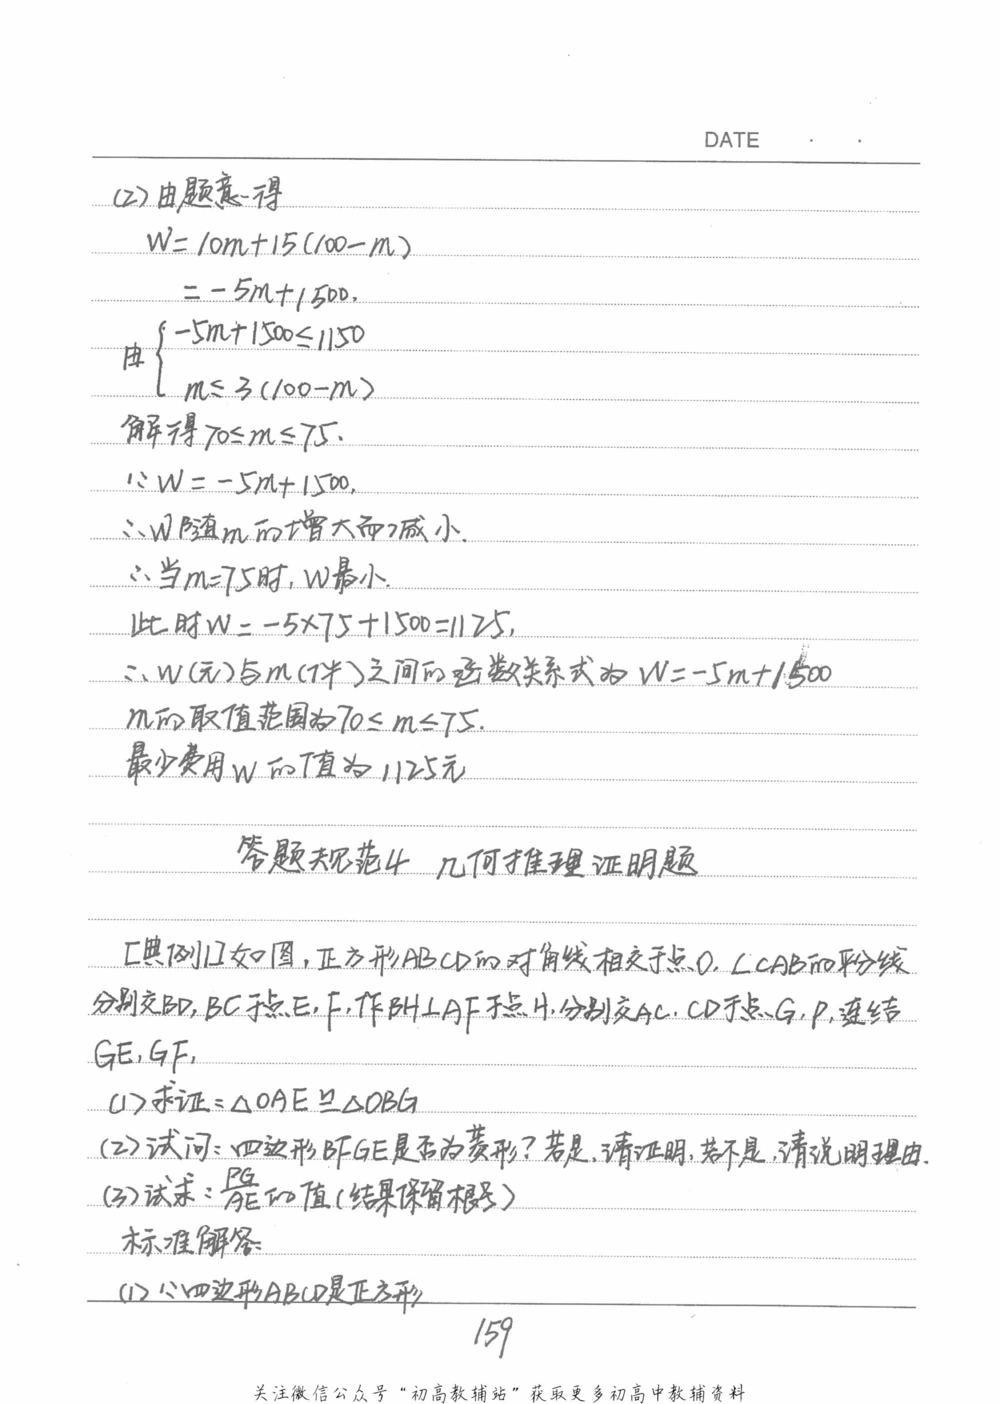 DATE · ·
(2)由题意得
W=10m+15(100-m)
=-5m+1500.
由{-5m+1500≤1150
m≤3(100-m)
解得70≤m≤75.
∵W=-5m+1500,
∴W随m的增大而减小.
∴当m=75时,W最小.
此时W=-5×75+1500=1125,
∴W(元)与m(件)之间的函数关系式为W=-5m+1500
m的取值范围为70≤m≤75.
最少费用W的值为1125元
答题规范4 几何推理证明题
[典例1]如图,正方形ABCD的对角线相交于点O,∠CAB的平分线
分别交BD,BC于点E,F,作BH⊥AF于点H,分别交AC,CD于点G,P,连结
GE,GF,
(1)求证:△OAE≌△OBG
(2)试问:四边形BFGE是否为菱形?若是,请证明,若不是,请说明理由.
(3)试求:PG/AE的值(结果保留根号)
标准解答:
(1)∵四边形ABCD是正方形
159
关注微信公众号“初高教辅站”获取更多初高中教辅资料